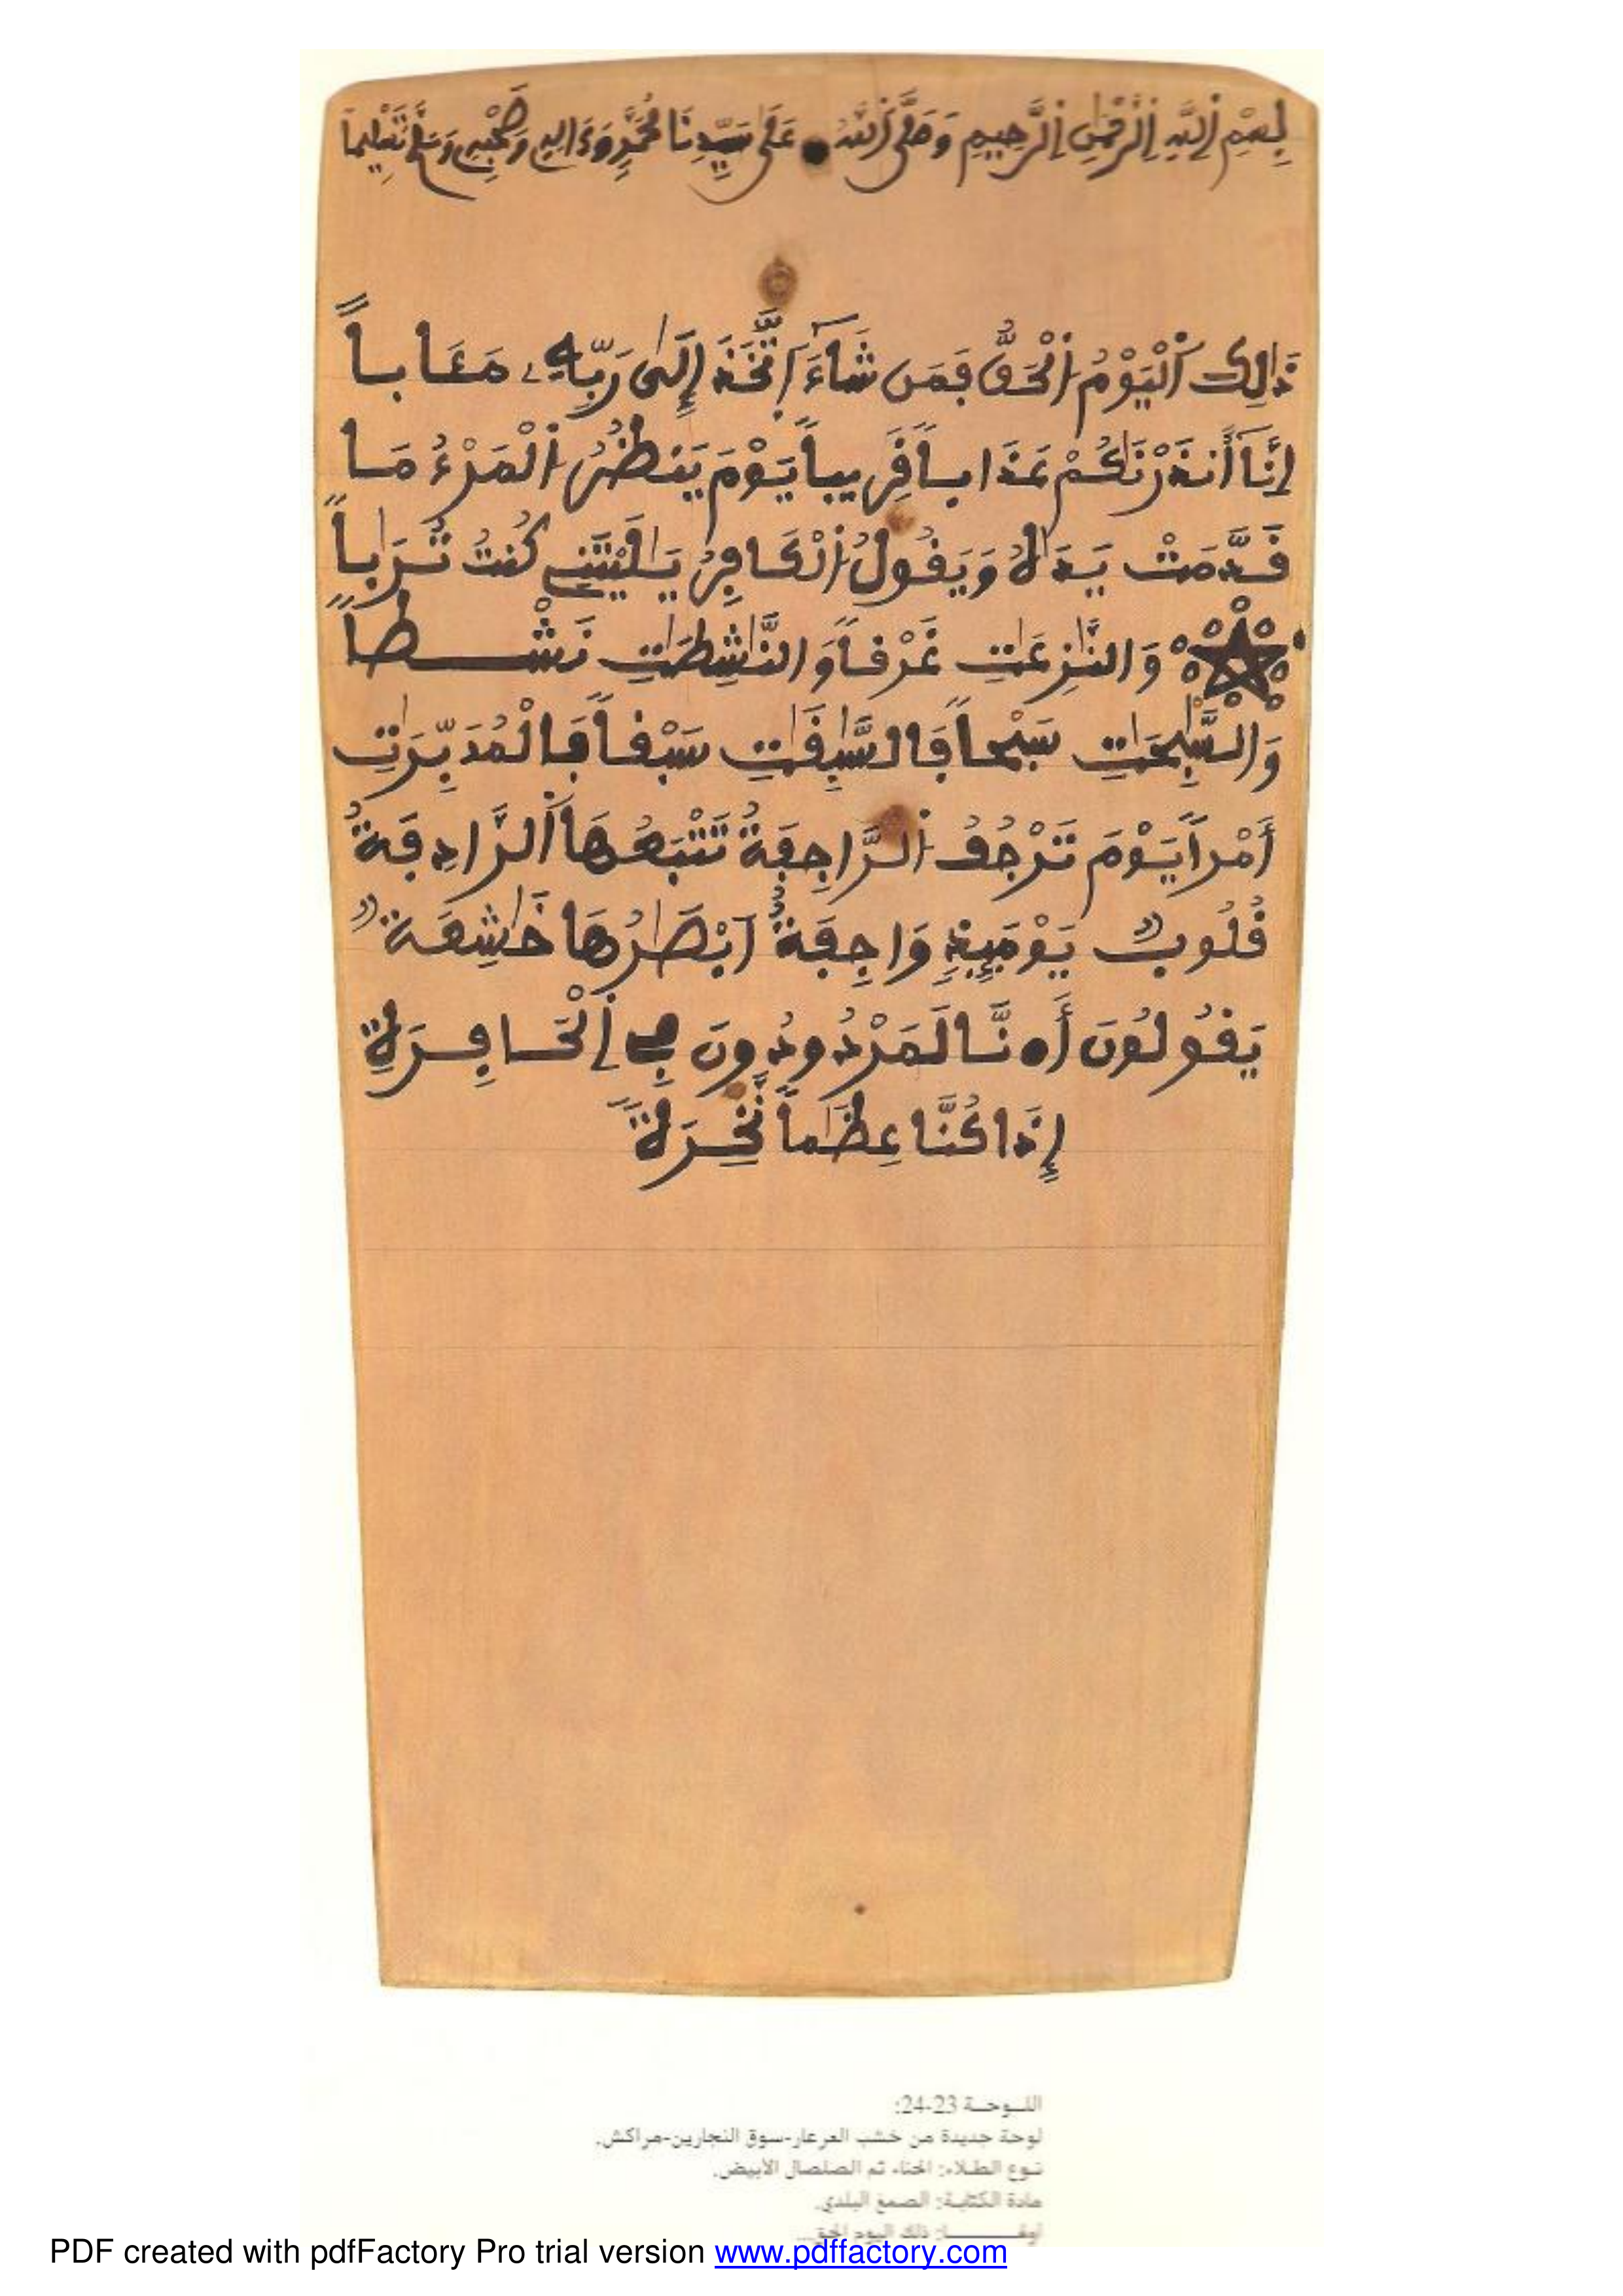 بِسْمِ اِ۬للَّهِ اِ۬لرَّحْمَٰنِ اِ۬لرَّحِيمِ وَصَلَّى اَ۬للَّهُ عَلَى سَيِّدِنَا مُحَمَّدٍ وَءَالِهِ وَصَحْبِهِ وَسَلَّمَ تَسْلِيماً
ذَٰلِكَ اَ۬لْيَوْمُ اُ۬لْحَقُّ فَمَن شَآءَ اَ۪تَّخَذَ إِلَىٰ رَبِّهِۦ مَـَٔاباً
إِنَّآ أَنذَرْنَٰكُمْ عَذَاباً قَرِيباً يَوْمَ يَنظُرُ اُ۬لْمَرْءُ مَا
قَدَّمَتْ يَدَٰهُ وَيَقُولُ اُ۬لْكَافِرُ يَٰلَيْتَنِے كُنتُ تُرَٰباً
وَالنَّٰزِعَٰتِ غَرْقاً وَالنَّٰشِطَٰتِ نَشْطاً
وَالسَّٰبِحَٰتِ سَبْحاً فَالسَّٰبِقَٰتِ سَبْقاً فَالْمُدَبِّرَٰتِ
أَمْراً يَوْمَ تَرْجُفُ اُ۬لرَّاجِفَةُ تَتْبَعُهَا اَ۬لرَّادِفَةُ
قُلُوبٌ يَوْمَئِذٍ وَاجِفَةٌ اَبْصَٰرُهَا خَٰشِعَةٌ
يَقُولُونَ أَ•نَّا لَمَرْدُودُونَ فِے اِ۬لْحَافِرَةِ
إِذَا كُنَّا عِظَٰماً نَّخِرَةً
اللـوحـة 23-24:
لوحة جديدة من خشب العرعار-سوق النجارين-مراكش.
نوع الطلاء: الحناء ثم الصلصال الأبيض.
مادة الكتابة: الصمغ البلدي.
أولهـــــا: ذلك اليوم الحق...
PDF created with pdfFactory Pro trial version www.pdffactory.com